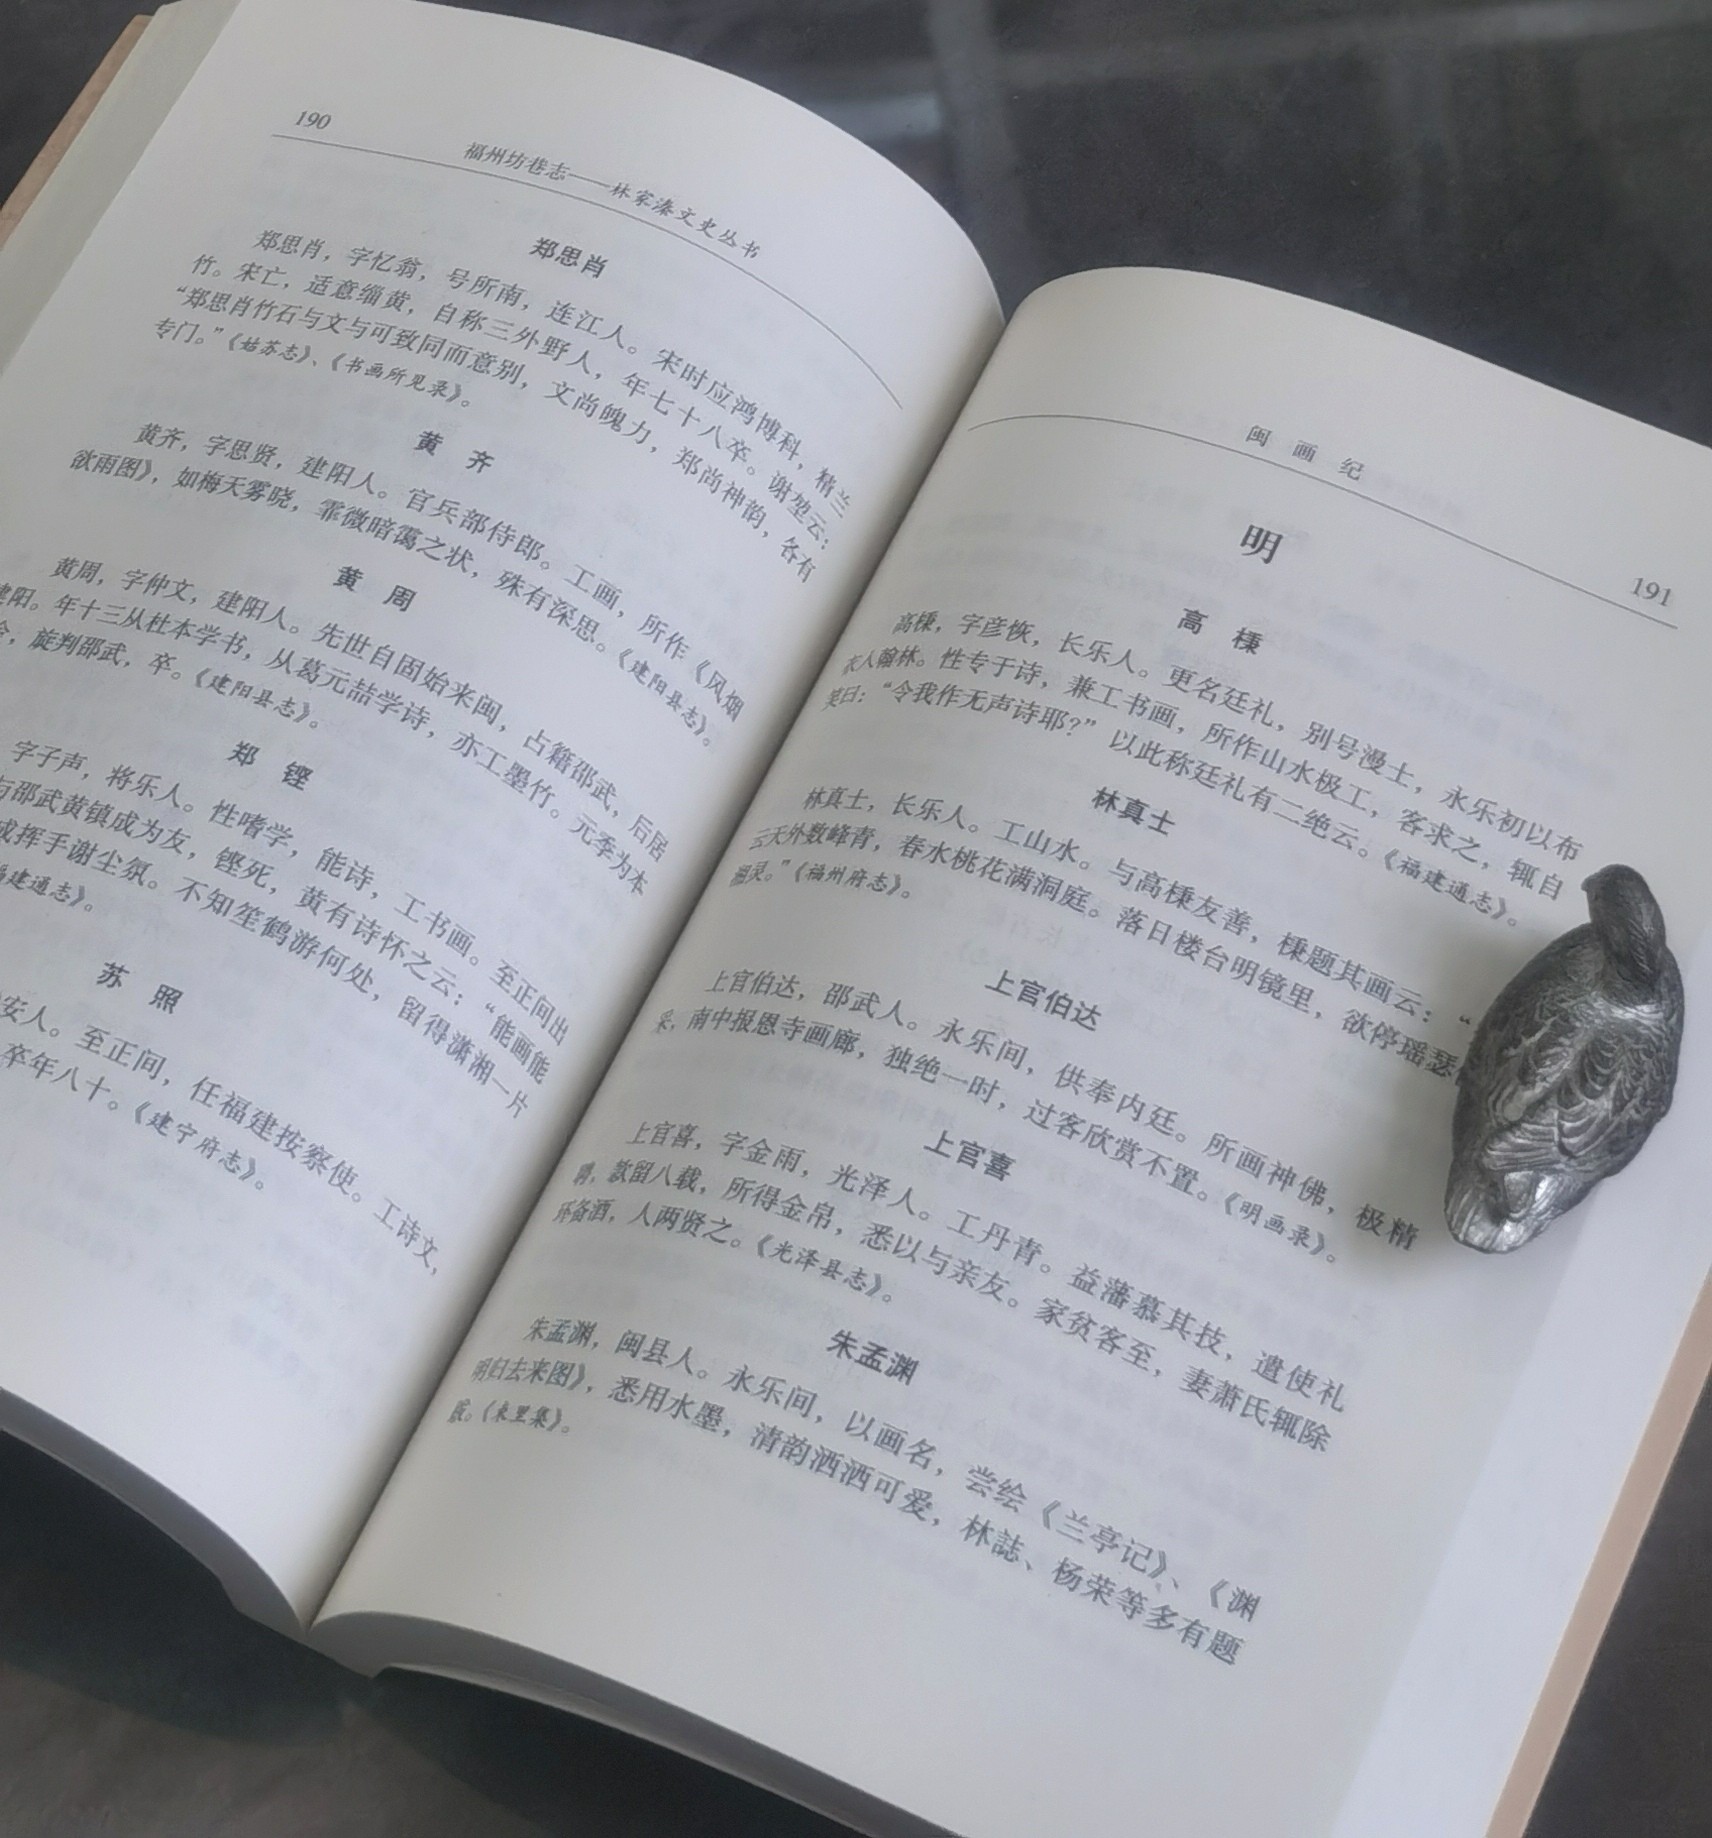 190
福州坊巷志——林家溱文史丛书
郑思肖
郑思肖，字忆翁，号所南，连江人。宋时应鸿博科，精兰
竹。宋亡，适意缁黄，自称三外野人，年七十八卒。谢堃云：
“郑思肖竹石与文与可致同而意别，文尚魄力，郑尚神韵，各有
专门。”《姑苏志》、《书画所见录》。
黄 齐
黄齐，字思贤，建阳人。官兵部侍郎。工画，所作《风烟
欲雨图》，如梅天雾晓，霏微暗霭之状，殊有深思。《建阳县志》。
黄 周
黄周，字仲文，建阳人。先世自固始来闽，占籍邵武，后居
建阳。年十三从杜本学书，从葛元喆学诗，亦工墨竹。元季为本
，旋判邵武，卒。《建阳县志》。
郑 铿
字子声，将乐人。性嗜学，能诗，工书画。至正间出
与邵武黄镇成为友，铿死，黄有诗怀之云：“能画能
成挥手谢尘氛。不知笙鹤游何处，留得潇湘一片
建通志》。
苏 照
安人。至正间，任福建按察使。工诗文，
卒年八十。《建宁府志》。
闽 画 纪
191
明
高 棅
高棅，字彦恢，长乐人。更名廷礼，别号漫士，永乐初以布
衣入翰林。性专于诗，兼工书画，所作山水极工，客求之，辄自
笑曰：“令我作无声诗耶？”以此称廷礼有二绝云。《福建通志》。
林真士
林真士，长乐人。工山水。与高棅友善，棅题其画云：“
云天外数峰青，春水桃花满洞庭。落日楼台明镜里，欲停瑶瑟
湘灵。”《福州府志》。
上官伯达
上官伯达，邵武人。永乐间，供奉内廷。所画神佛，极精
采，南中报恩寺画廊，独绝一时，过客欣赏不置。《明画录》。
上官喜
上官喜，字金雨，光泽人。工丹青。益藩慕其技，遣使礼
聘，款留八载，所得金帛，悉以与亲友。家贫客至，妻萧氏辄除
环备酒，人两贤之。《光泽县志》。
朱孟渊
朱孟渊，闽县人。永乐间，以画名，尝绘《兰亭记》、《渊
明归去来图》，悉用水墨，清韵洒洒可爱，林誌、杨荣等多有题
跋。《东里集》。